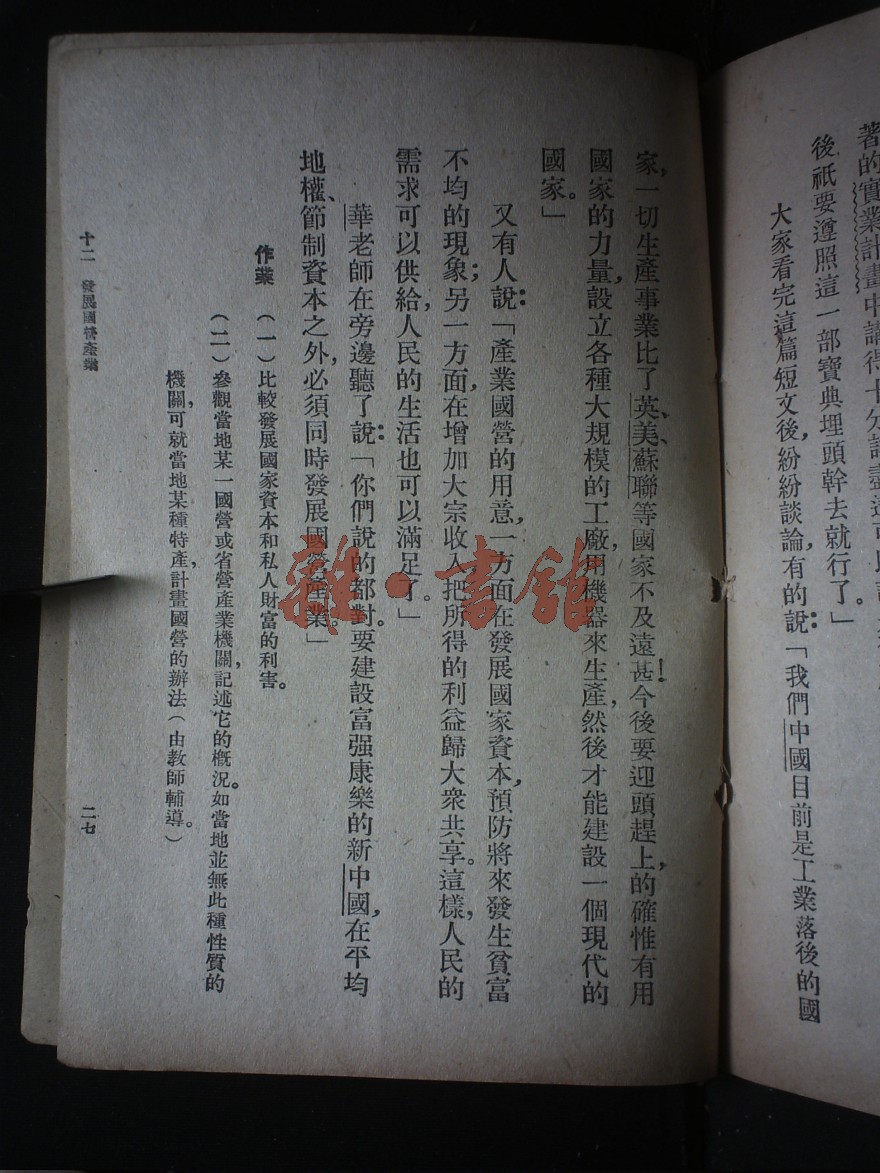 著的實業計畫中講得十分詳盡這可
後祇要遵照這一部寶典埋頭幹去就行了。」
大家看完這篇短文後，紛紛談論有的說：「我們中國目前是工業落後的國
家，一切生產事業比了英、美、蘇聯等國家不及遠甚！今後要迎頭趕上，的確惟有用
國家的力量，設立各種大規模的工廠，用機器來生產，然後才能建設一個現代的
國家。」
又有人說：「產業國營的用意，一方面在發展國家資本，預防將來發生貧富
不均的現象；另一方面，在增加大宗收入，把所得的利益歸大衆共享。這樣，人民的
需求可以供給，人民的生活也可以滿足了。」
華老師在旁邊聽了說：「你們說的都對。要建設富强康樂的新中國，在平均
地權、節制資本之外，必須同時發展國營產業。」
作業　（一）比較發展國家資本和私人財富的利害。
（二）參觀當地某一國營或省營產業機關，記述它的概況。如當地並無此種性質的
機關，可就當地某種特產計畫國營的辦法（由教師輔導。）
十二　發展國營產業　二七
雜·書館